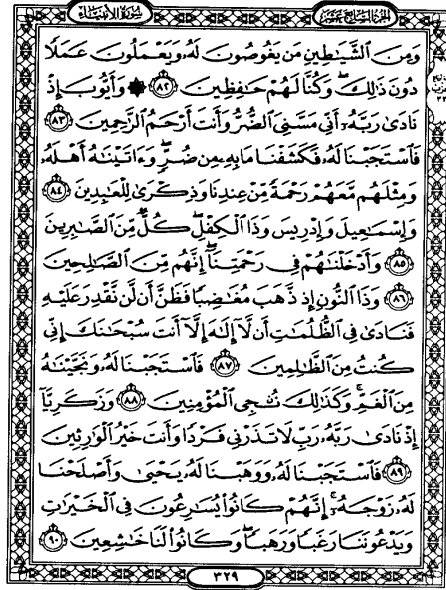 سورة الأنبياء
الجزء السابع عشر
وَمِنَ ٱلشَّيَٰطِينِ مَن يَغُوصُونَ لَهُۥ وَيَعْمَلُونَ عَمَلًا
دُونَ ذَٰلِكَ ۖ وَكُنَّا لَهُمْ حَٰفِظِينَ ﴿٨٢﴾ ۞ وَأَيُّوبَ إِذْ
نَادَىٰ رَبَّهُۥٓ أَنِّى مَسَّنِىَ ٱلضُّرُّ وَأَنتَ أَرْحَمُ ٱلرَّٰحِمِينَ ﴿٨٣﴾
فَٱسْتَجَبْنَا لَهُۥ فَكَشَفْنَا مَا بِهِۦ مِن ضُرٍّ ۖ وَءَاتَيْنَٰهُ أَهْلَهُۥ
وَمِثْلَهُم مَّعَهُمْ رَحْمَةً مِّنْ عِندِنَا وَذِكْرَىٰ لِلْعَٰبِدِينَ ﴿٨٤﴾
وَإِسْمَٰعِيلَ وَإِدْرِيسَ وَذَا ٱلْكِفْلِ ۖ كُلٌّ مِّنَ ٱلصَّٰبِرِينَ
﴿٨٥﴾ وَأَدْخَلْنَٰهُمْ فِى رَحْمَتِنَآ ۖ إِنَّهُم مِّنَ ٱلصَّٰلِحِينَ
﴿٨٦﴾ وَذَا ٱلنُّونِ إِذ ذَّهَبَ مُغَٰضِبًا فَظَنَّ أَن لَّن نَّقْدِرَ عَلَيْهِ
فَنَادَىٰ فِى ٱلظُّلُمَٰتِ أَن لَّآ إِلَٰهَ إِلَّآ أَنتَ سُبْحَٰنَكَ إِنِّى
كُنتُ مِنَ ٱلظَّٰلِمِينَ ﴿٨٧﴾ فَٱسْتَجَبْنَا لَهُۥ وَنَجَّيْنَٰهُ
مِنَ ٱلْغَمِّ ۚ وَكَذَٰلِكَ نُۨجِى ٱلْمُؤْمِنِينَ ﴿٨٨﴾ وَزَكَرِيَّآ
إِذْ نَادَىٰ رَبَّهُۥ رَبِّ لَا تَذَرْنِى فَرْدًا وَأَنتَ خَيْرُ ٱلْوَٰرِثِينَ
﴿٨٩﴾ فَٱسْتَجَبْنَا لَهُۥ وَوَهَبْنَا لَهُۥ يَحْيَىٰ وَأَصْلَحْنَا
لَهُۥ زَوْجَهُۥٓ ۚ إِنَّهُمْ كَانُوا۟ يُسَٰرِعُونَ فِى ٱلْخَيْرَٰتِ
وَيَدْعُونَنَا رَغَبًا وَرَهَبًا ۖ وَكَانُوا۟ لَنَا خَٰشِعِينَ ﴿٩٠﴾
٣٢٩